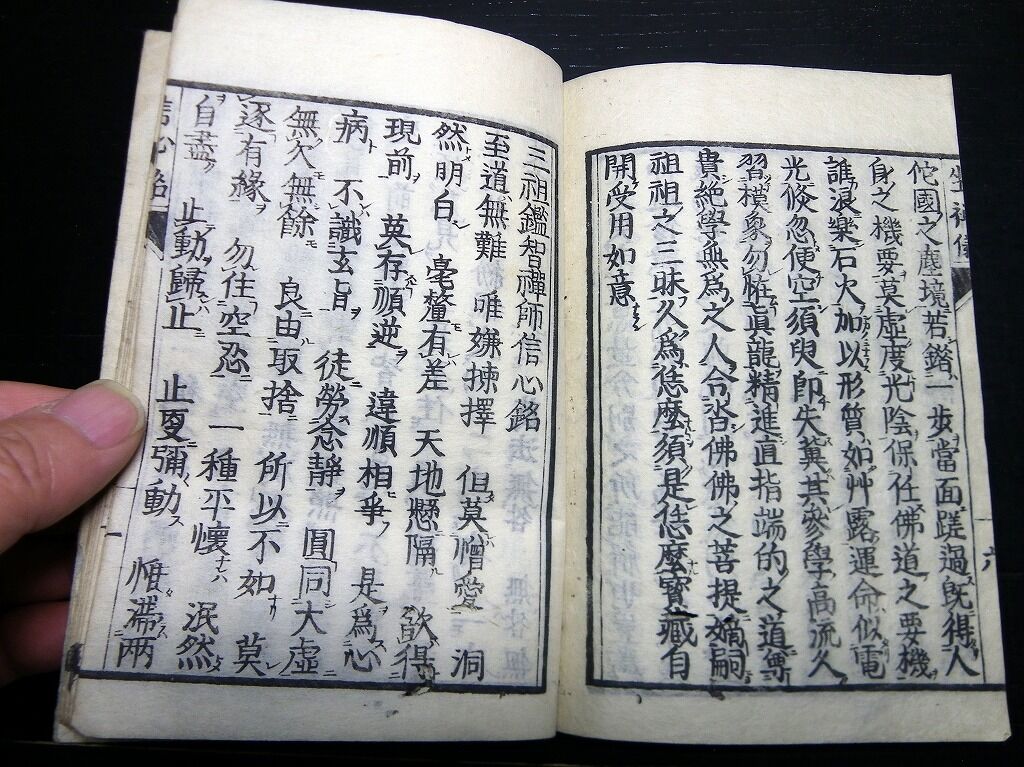 坐禪儀 六
佗國之塵境若錯一步當面蹉過既得人
身之機要莫虛度光陰保任佛道之要機
誰浪樂石火加以形質如艸露運命似電
光倏忽便空須臾即失冀其參學高流久
習模象勿恠眞龍精進直指端的之道尊
貴絶學無爲之人合沓佛佛之菩提嫡嗣
祖祖之三昧久爲恁麼須是恁麼寶藏自
開受用如意
三祖鑑智禪師信心銘
至道無難 唯嫌揀擇 但莫憎愛 洞
然明白 毫釐有差 天地懸隔 欲得
現前 莫存順逆 違順相爭 是爲心
病 不識玄旨 徒勞念靜 圓同大虛
無欠無餘 良由取捨 所以不如 莫
逐有緣 勿住空忍 一種平懷 泯然
自盡 止動歸止 止更彌動 惟滯兩
信心銘 一